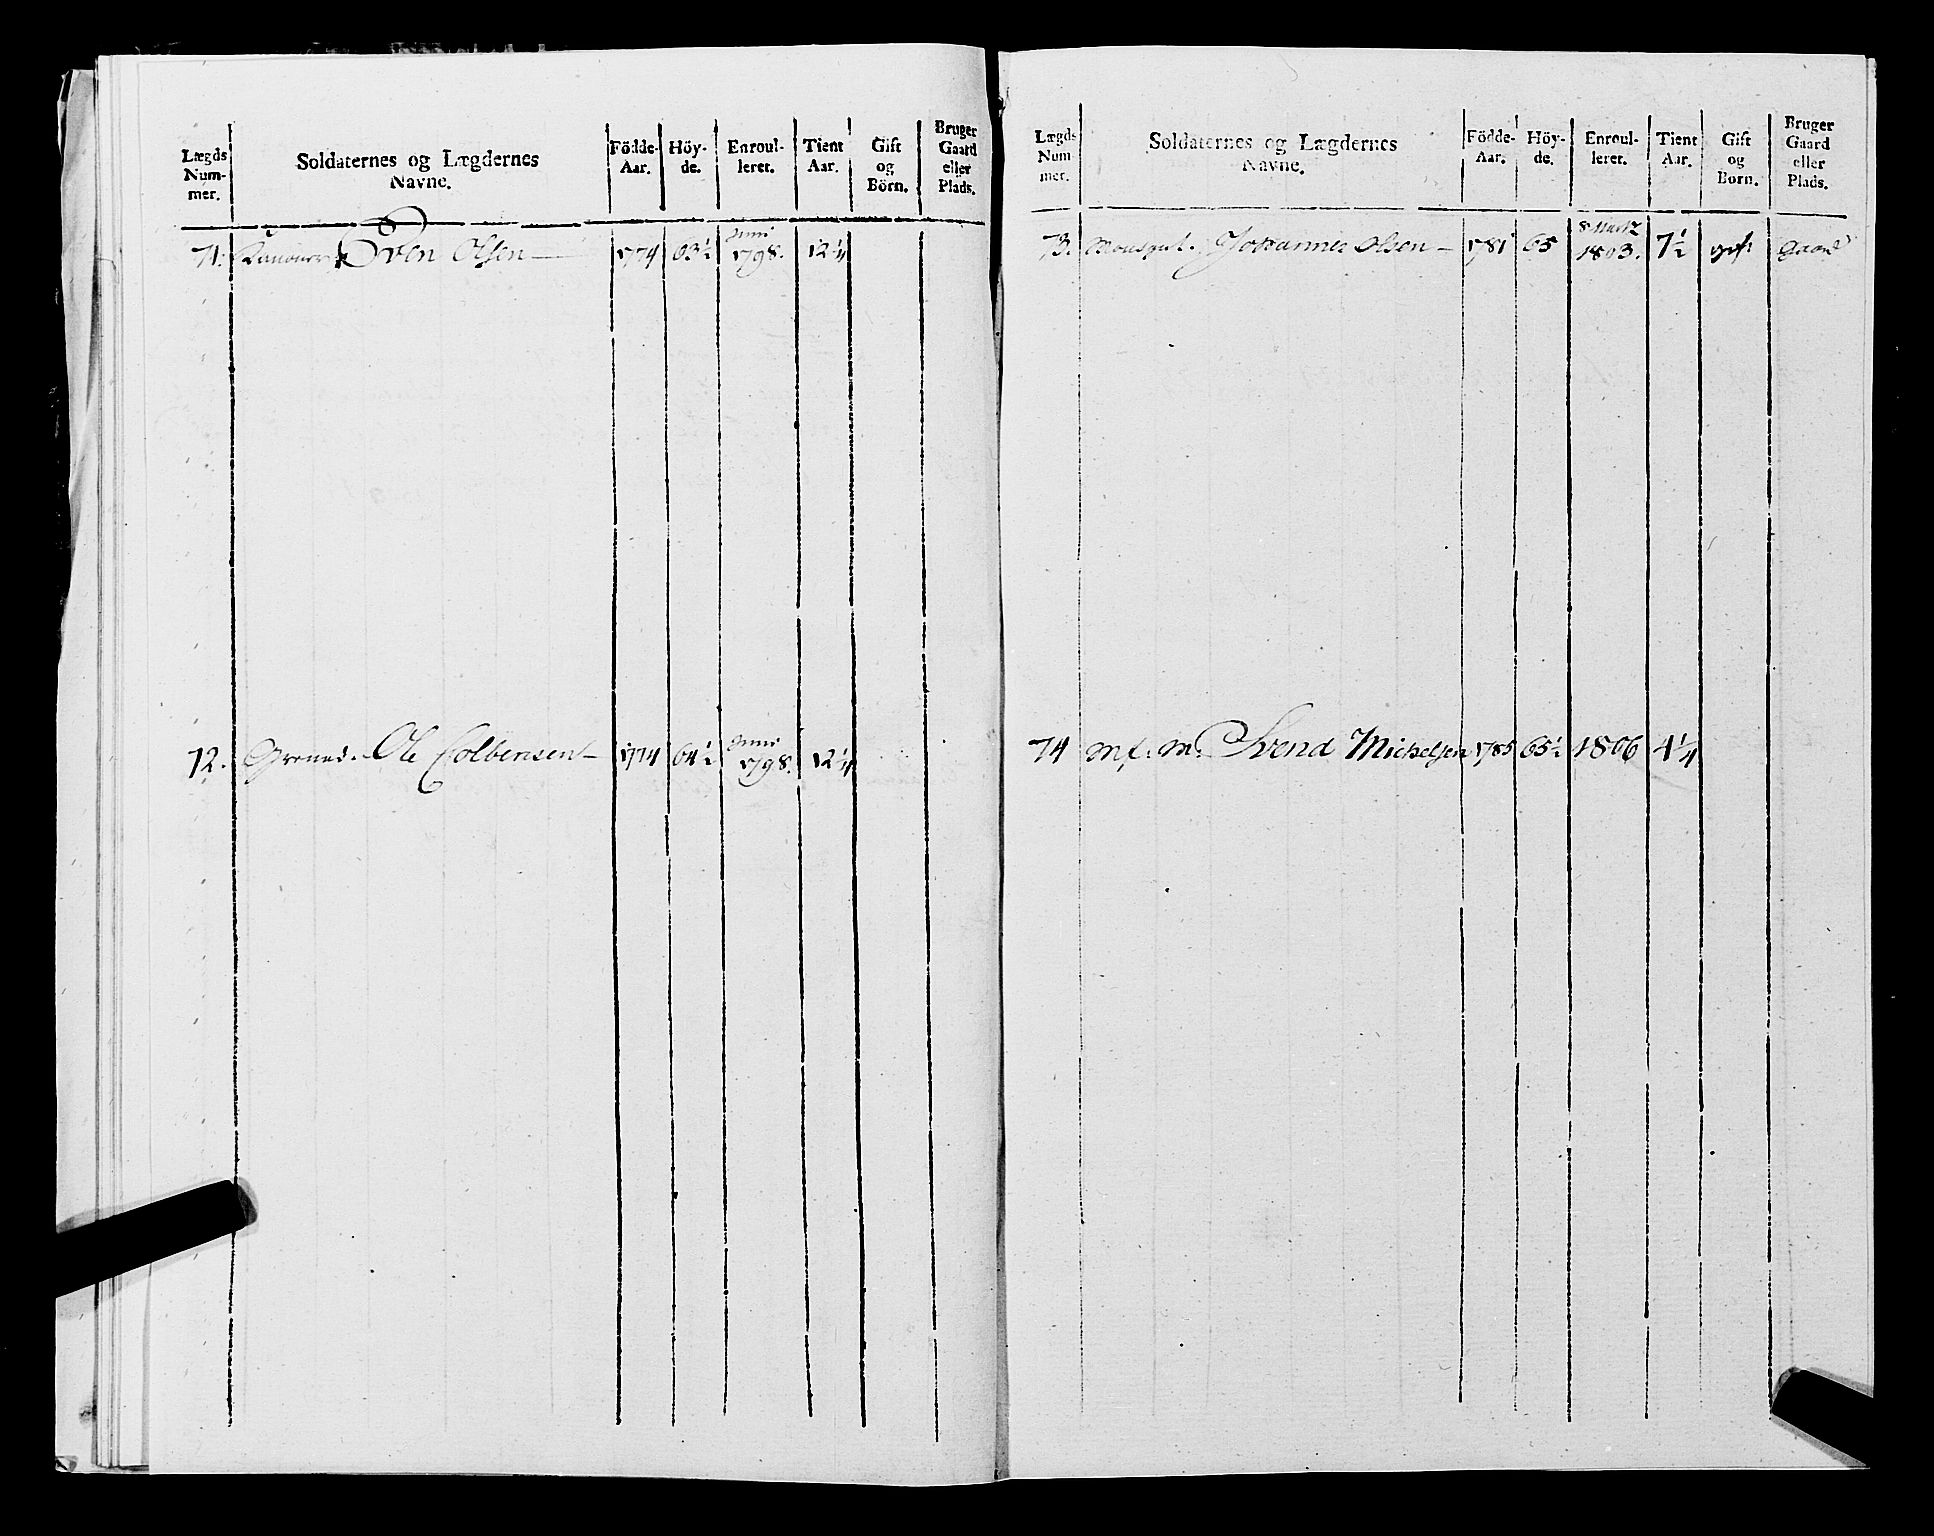 Lægds Num- mer. Soldaternes og Lægdernes Navne. Födde- Aar. Höy- de. Enroul- leret. Tient Aar. Gift og Börn. Bruger Gaard eller Plads.
71. Sven Olsen — 1774 63½ Juni 1798. 12¼
72. Grenad. Ole Colbensen — 1774 64½ Juni 1798. 12¼
Lægds Num- mer. Soldaternes og Lægdernes Navne. Födde- Aar. Höy- de. Enroul- leret. Tient Aar. Gift og Born. Bruger Gaard eller Plads.
73. Mousqut. Johannes Olsen — 1781 65 1803. 7½ gift Gaard
74 Svend Michelsen 1785 65½ 1806 4¼